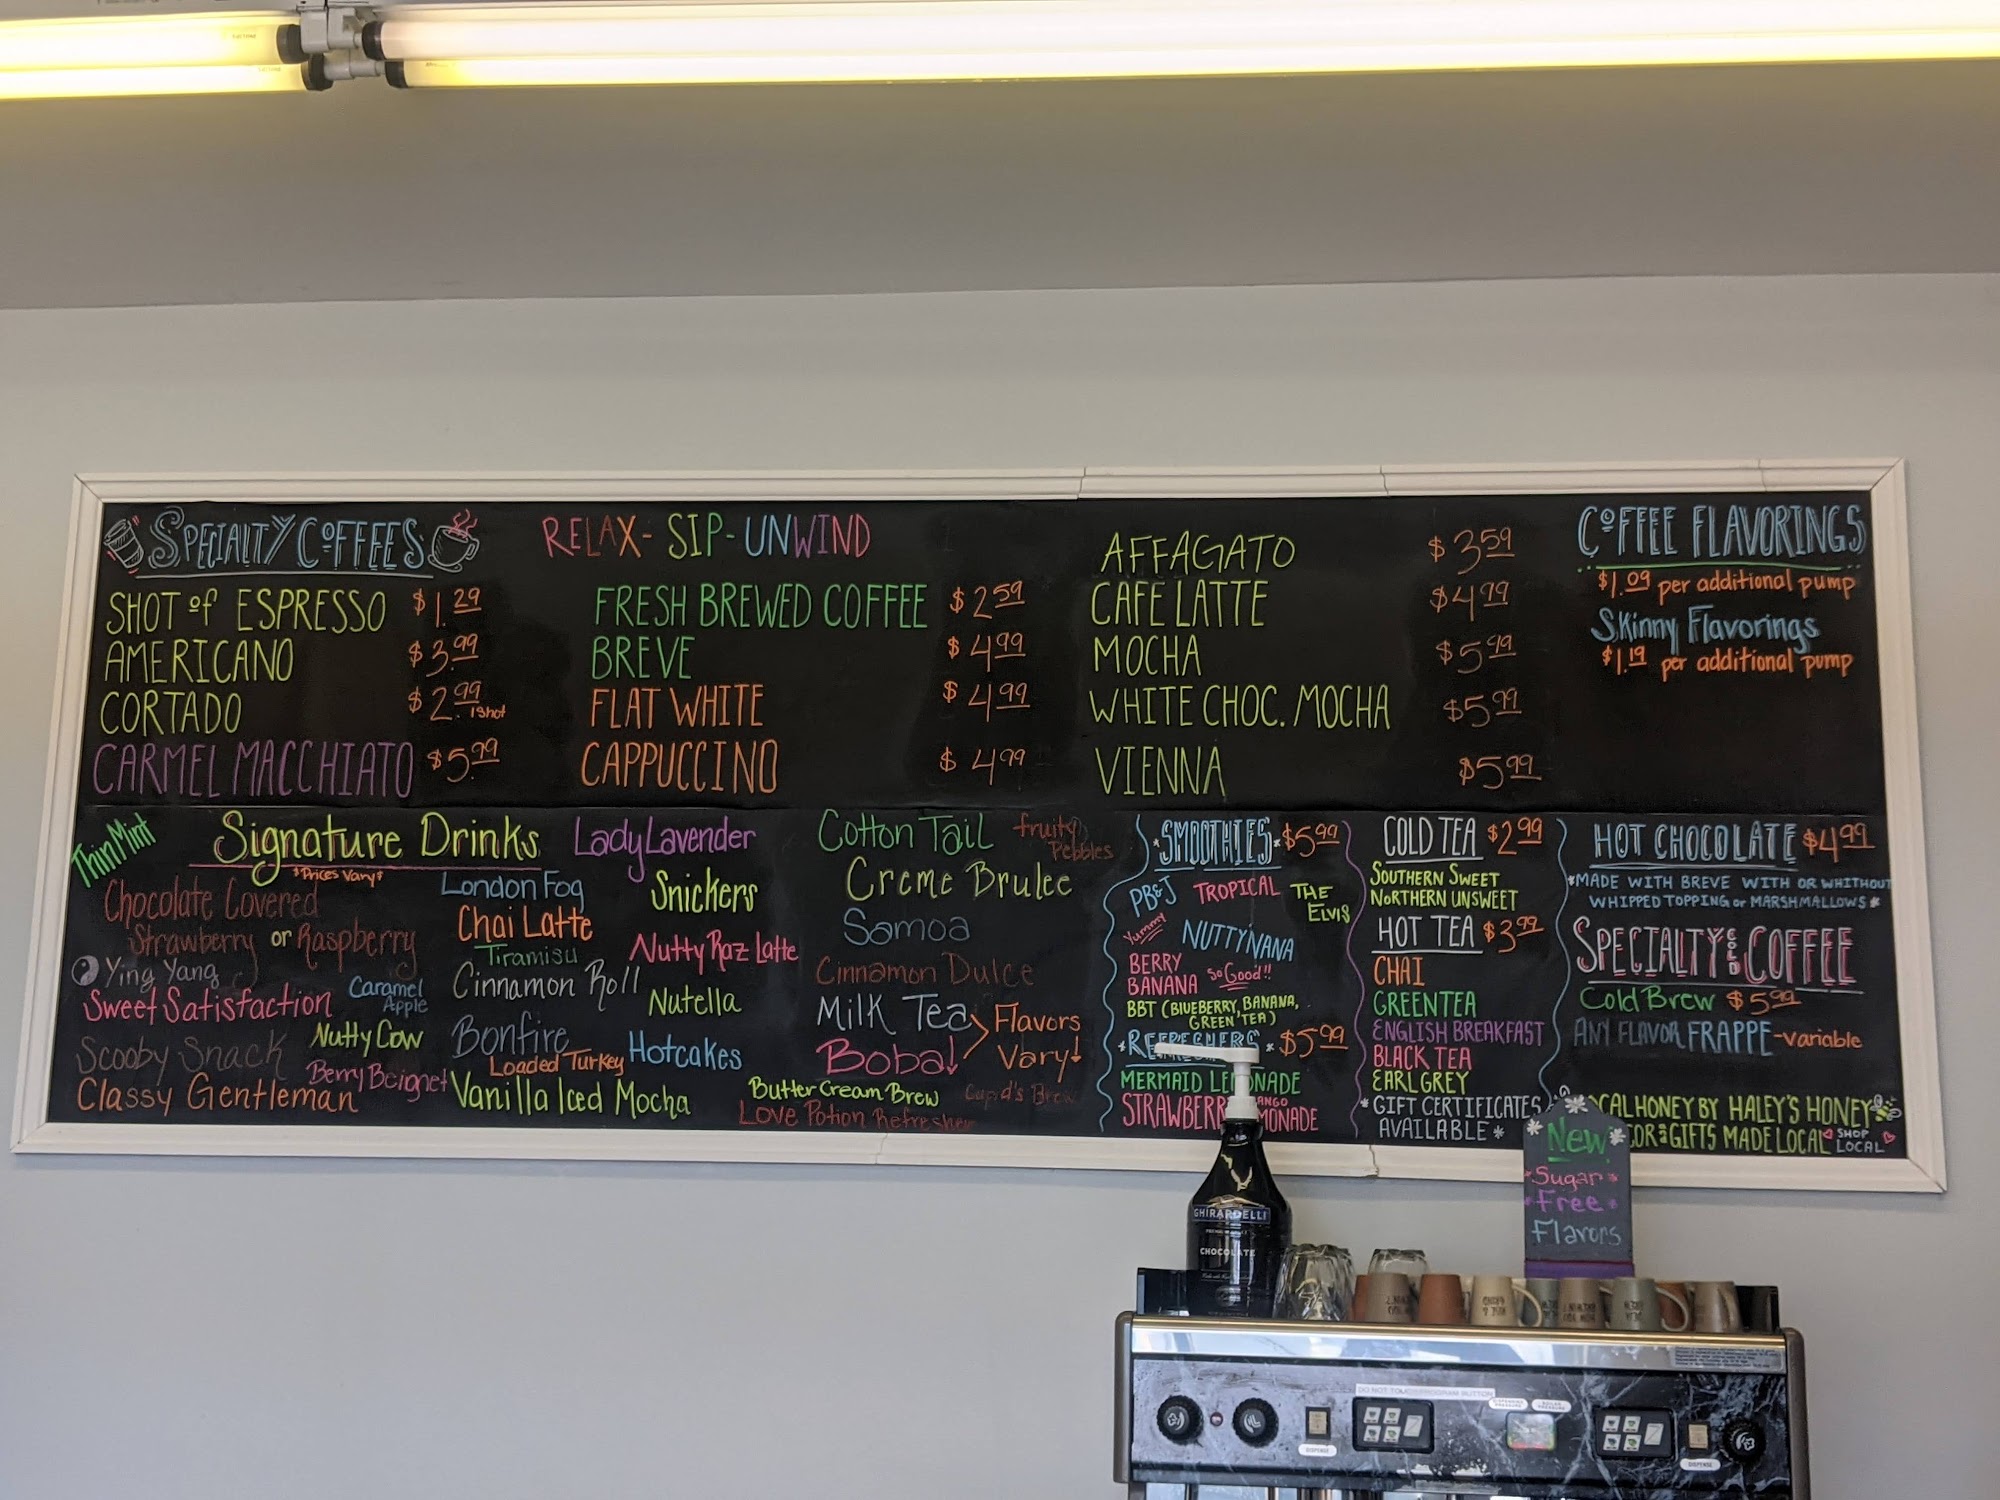 SPECIALTY COFFEES
SHOT of ESPRESSO $1.29
AMERICANO $3.99
CORTADO $2.99 1 shot
CARMEL MACCHIATO $5.99
RELAX - SIP - UNWIND
FRESH BREWED COFFEE $2.59
BREVE $4.99
FLAT WHITE $4.99
CAPPUCCINO $4.99
AFFAGATO $3.59
CAFE LATTE $4.99
MOCHA $5.99
WHITE CHOC. MOCHA $5.99
VIENNA $5.99
COFFEE FLAVORINGS
$1.09 per additional pump
Skinny Flavorings
$1.19 per additional pump
Signature Drinks
*Prices Vary*
Thin Mint
Chocolate Covered
Strawberry or Raspberry
Ying Yang
Sweet Satisfaction
Scooby Snack
Classy Gentleman
Caramel
Apple
Nutty Cow
Berry Beignet
London Fog
Chai Latte
Tiramisu
Cinnamon Roll
Bonfire
Loaded Turkey
Vanilla Iced Mocha
Lady Lavender
Snickers
Nutty Raz Latte
Nutella
Hotcakes
Butter Cream Brew
Love Potion Refresher
Cotton Tail
fruity
Pebbles
Creme Brulee
Samoa
Cinnamon Dulce
Milk Tea
Boba!
Flavors
Vary!
Cupid's Brew
*SMOOTHIES* $5.99
PB&J
TROPICAL
THE
ELVIS
Yummy
NUTTYNANA
BERRY
BANANA
So Good!!
BBT (BLUEBERRY, BANANA,
GREEN TEA)
*REFRESHERS* $5.99
MERMAID LEMONADE
STRAWBERRY MANGO LEMONADE
COLD TEA $2.99
SOUTHERN SWEET
NORTHERN UNSWEET
HOT TEA $3.99
CHAI
GREEN TEA
ENGLISH BREAKFAST
BLACK TEA
EARL GREY
*GIFT CERTIFICATES
AVAILABLE*
HOT CHOCOLATE $4.99
*MADE WITH BREVE WITH OR WHITHOUT
WHIPPED TOPPING or MARSHMALLOWS*
SPECIALTY COLD COFFEE
Cold Brew $5.99
ANY FLAVOR FRAPPE - variable
LOCAL HONEY BY HALEY'S HONEY
GIFTS MADE LOCAL
SHOP
LOCAL
New
*Sugar*
*Free*
Flavors
GHIRARDELLI
CHOCOLATE
DO NOT TOUCH PROGRAM BUTTON
DISPENSE
DISPENSE